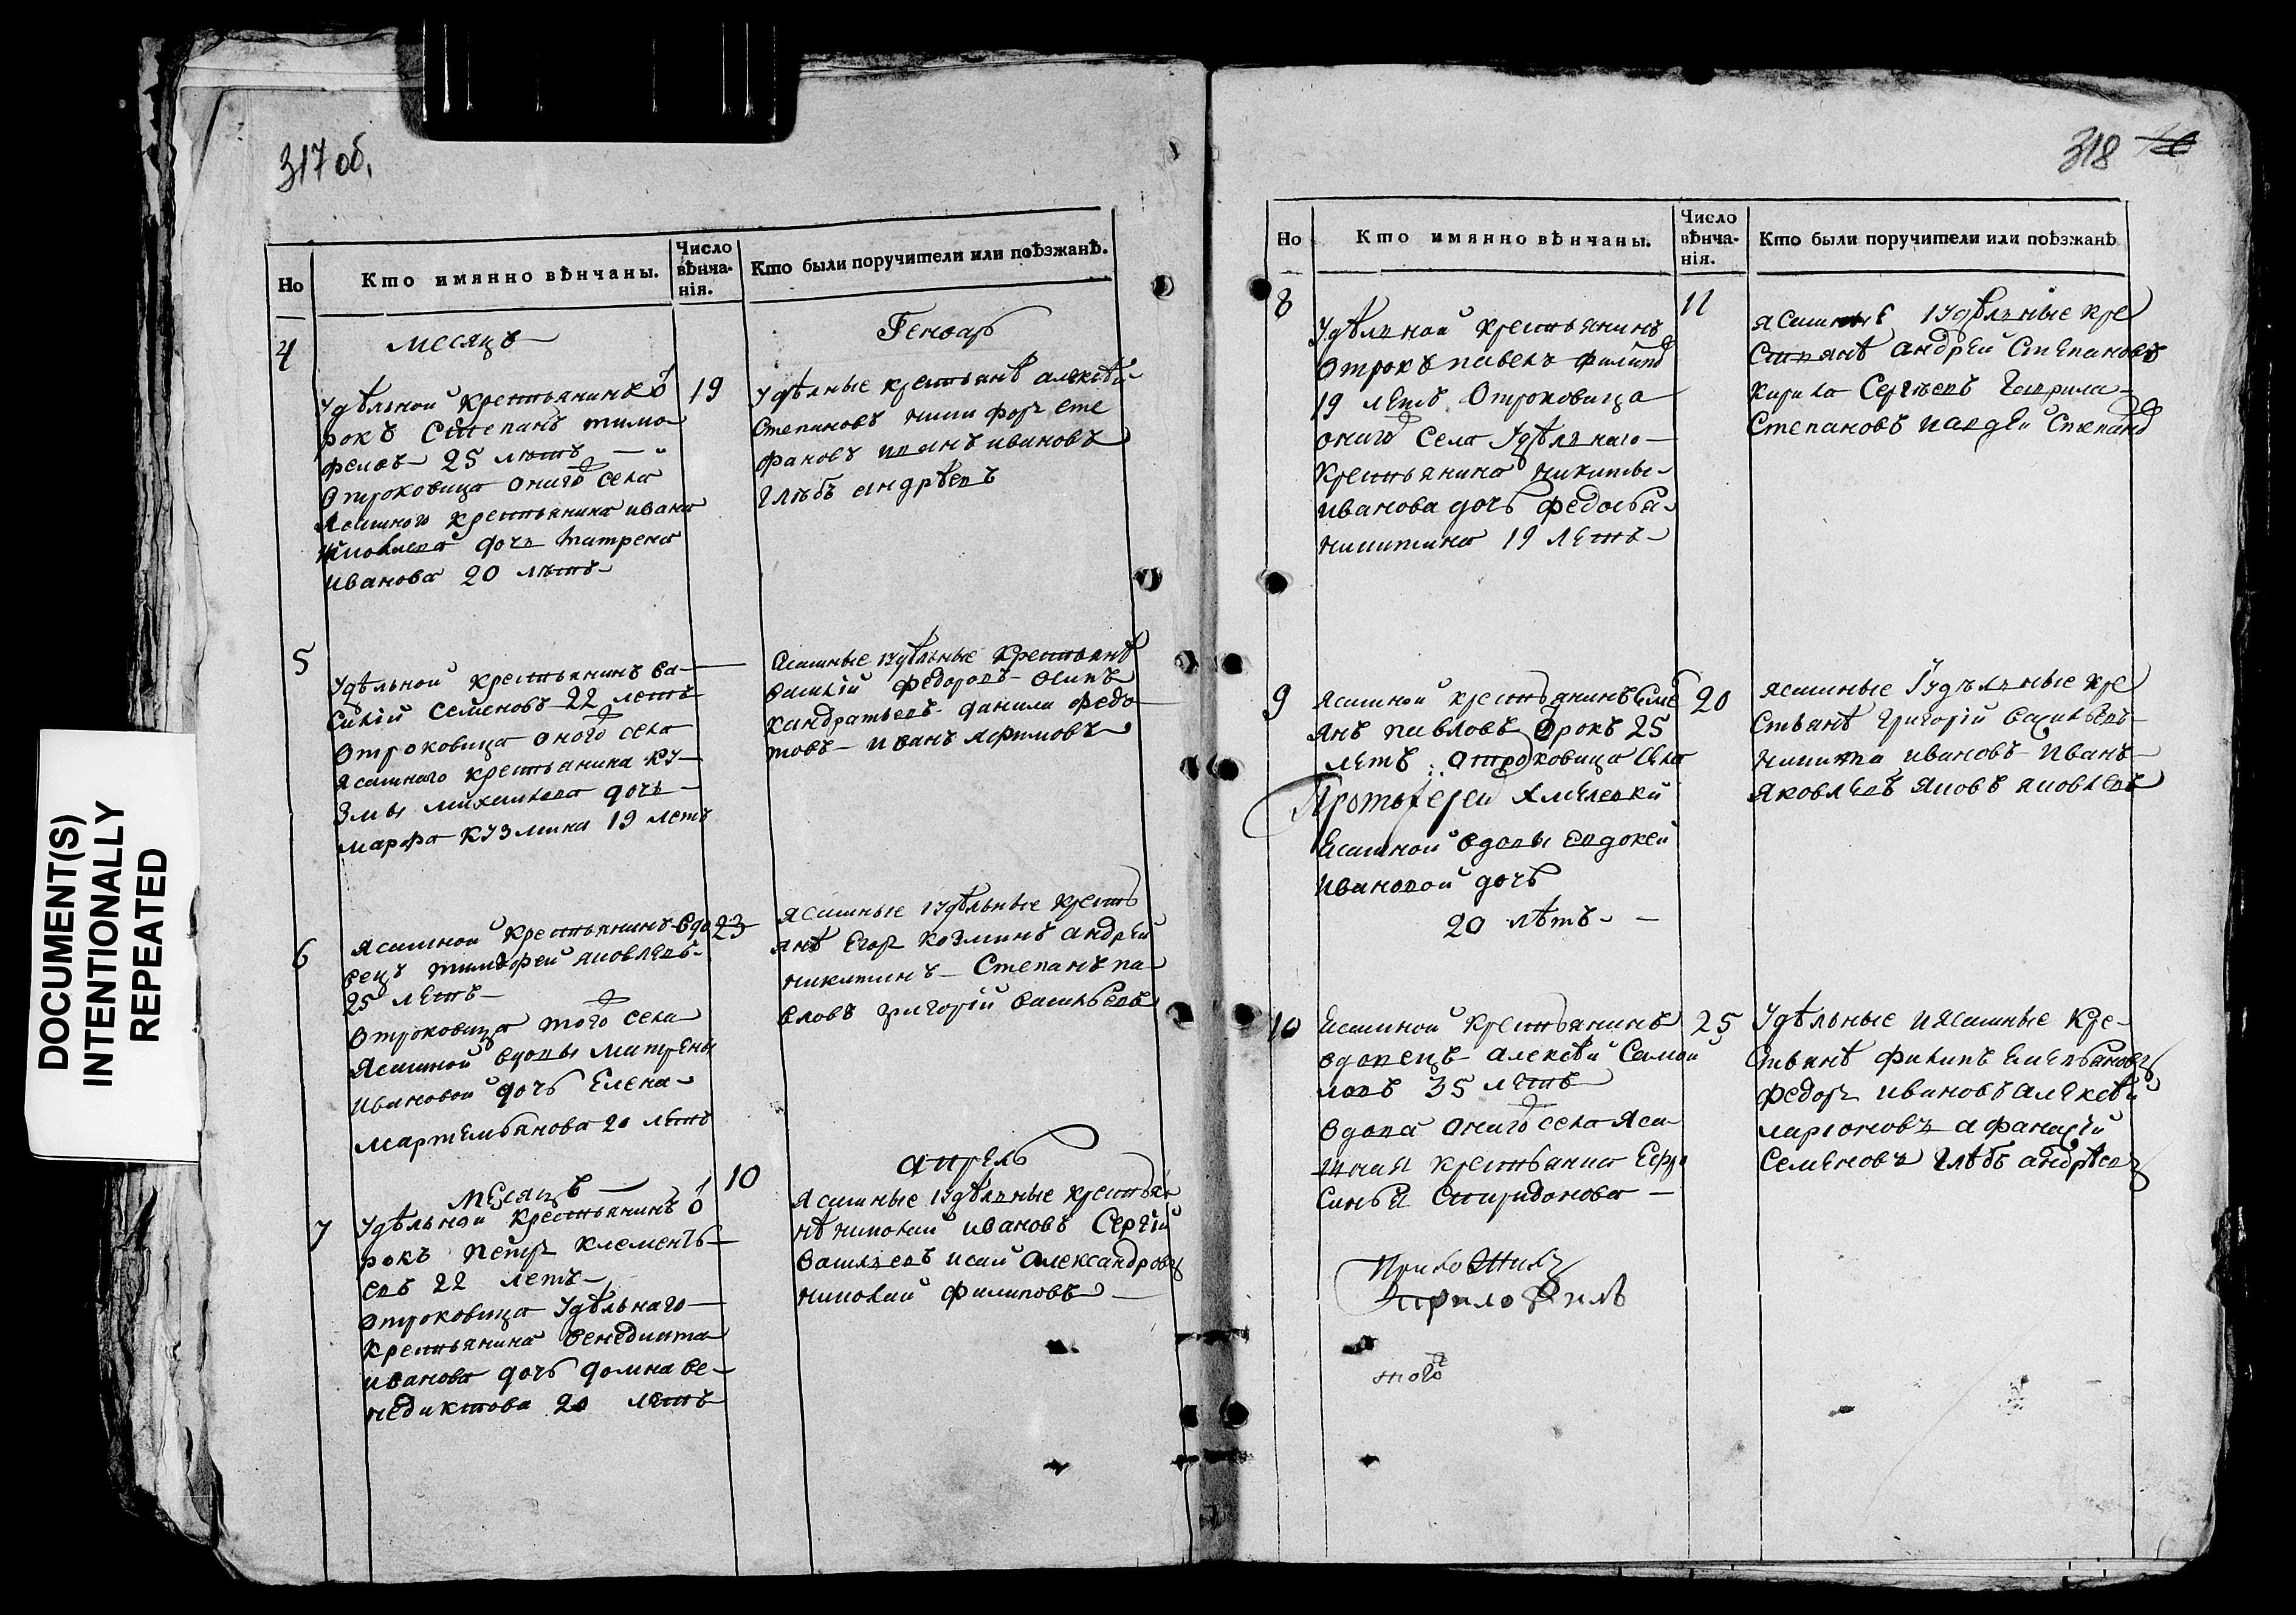 DOCUMENT(S)
INTENTIONALLY
REPEATED
317 об.
Но
Кто имянно вѣнчаны.
Число
вѣнча-
нія.
Кто были поручители или поѣзжанѣ.
4
месяцъ
Генварь
Удѣльной крестьянинъ ѿ
рокъ Степанъ тимо
феивъ 25 лѣтъ
Отроковица онаго села
Ясашного крестьянина ивана
дочь матрена
Иванова 20 лѣтъ
19
Удѣлные крестьянѣ алексѣй
Степановъ никифоръ сте
фановъ иванъ ивановъ
глѣбъ андрѣевъ
5
Удѣльной крестьянинъ Ва-
силій Семеновъ 22 летъ
Отроковица оного села
ясашнаго крестьянина ку-
змы михаилова дочь
марфа кузмина 19 летъ
Ясашные иудѣльные крестьянѣ
Василій федоровъ Осипъ
кандратьевъ данила федо
товъ иванъ Ефимовъ
6
ясашной крестьянинъ вдо
вецъ тимофей яковлевъ
25 летъ
Отроковица того села
Ясашной вдовы матрены
Ивановой дочь Елена
мартемьянова 20 летъ
23
ясашные иудѣльные кресть
янѣ Егоръ козминъ андрей
никитинъ Степанъ па
вловъ григорій васильевъ
месяцъ
апрель
7
Удѣльной крестьянинъ ѿ
рокъ петръ клементь-
евъ 22 летъ
отроковица Удѣльнаго
крестьянина венедикта
иванова дочь домна ве-
недиктова 20 летъ
10
Ясашные иудѣлные крестьян
нѣ николай ивановъ Сергій
Васильевъ исай Александровъ
николай филиповъ
318
Но
Кто имянно вѣнчаны.
Число
вѣнча-
нія.
Кто были поручители или поѣзжанѣ
8
Удѣлной крестьянинъ
Отрокъ павелъ филипо
19 летъ Отроковица
онаго села Удѣлнаго
крестьянина никиты
иванова дочь федосья
никитина 19 летъ
11
ясашные иудѣлные кре
стьянѣ андрей Степановъ
кирила Сергѣевъ гаврила
Степановъ Степано
9
ясашной крестьянинъ Еме
янъ павловъ ѿрокъ 25
летъ отроковица села
Ясашной вдовы Евдокеи
Ивановой дочь
20 лѣтъ
20
ясашные иудѣлные кре
стьянѣ григорій васильевъ
никита ивановъ Иванъ
яковлевъ яковъ яковлевъ
10
Ясашной крестьянинъ
вдовецъ алексѣй Самой
ловъ 35 летъ
вдова онаго села яса
шная крестьянка Ефро
синья Спиридонова
25
Удѣльные иясашные кре-
стьянѣ филипъ емельяновъ
федоръ ивановъ алексѣй
ларіоновъ афанасій
Семеновъ глѣбъ андрѣевъ